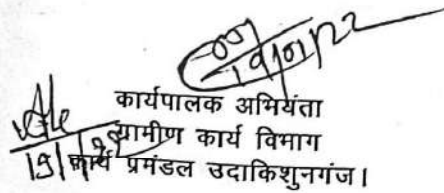 19/01/22
कार्यपालक अभियंता
ग्रामीण कार्य विभाग
कार्य प्रमंडल उदाकिशुनगंज।